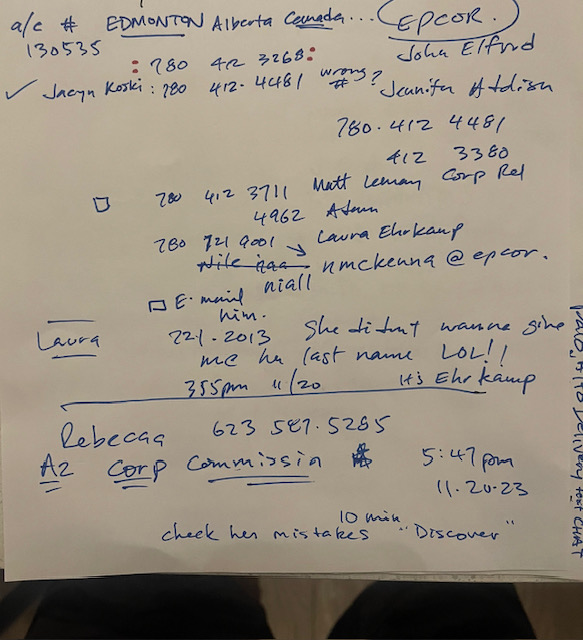 a/c # EDMONTON Alberta Canada... EPCOR.
130535 John Elford
: 780 412 3268 :
✓ Jacyn Koski : 780 412. 4481 wrong #? Jennifer Addison
780. 412 4481
412 3380
□ 780 412 3711 Matt Lemay Corp Rel
4962 Adam
780 721 9001 → Laura Ehrkamp
niall nmckenna @ epcor.
□ E-mail him.
Laura 721. 2013 She didn't wanna give
me her last name LOL!!
355pm 11/20 It's Ehrkamp
Rebecaa 623 587. 5285
AZ Corp Commissin 5:47 pm
11. 20. 23
10 min
check her mistakes "Discover"